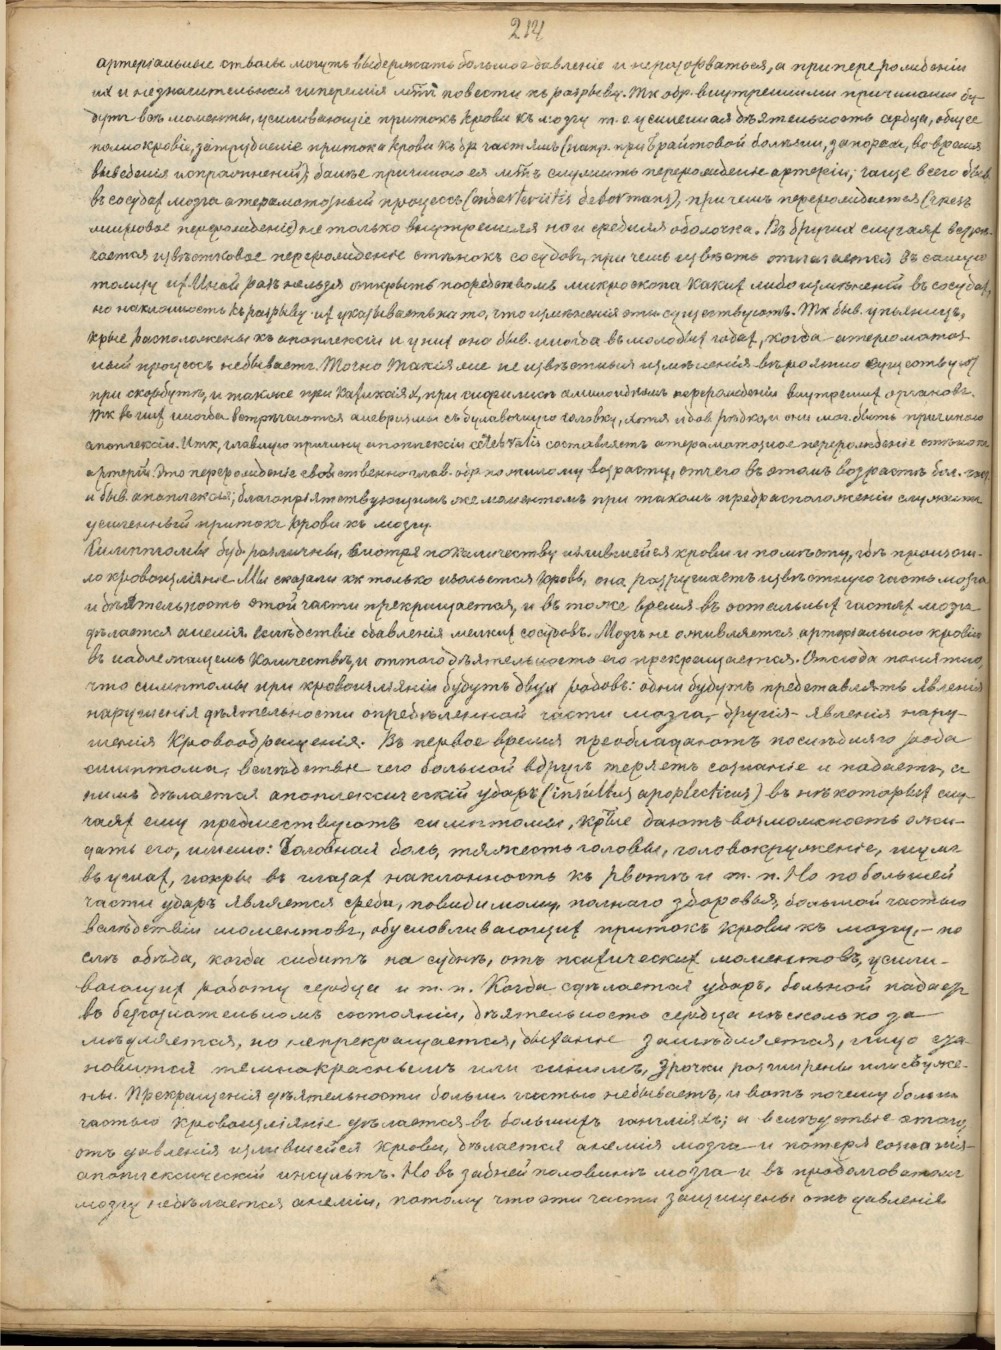 214
артеріальные стволы могутъ выдержать большое давленіе и неразорваться, а при перерожденіи
их и незначительная гиперемія м. повести къ разрыву. Тк. обр. внутренними причинами бу-
дутъ всѣ моменты, усиливающіе притокъ крови къ мозгу т. е. усиленная дѣятельность сердца, общее
полнокровіе, затрудненіе притока крови къ др. частямъ (напр. при Брайтовой болѣзни, запорахъ, во время
выведенія испражненій); далѣе причиною ея м. служить перерожденіе артерій; чаще всего быв.
въ сосудах мозга атероматозный процессъ (endarteriitis deformans), при чемъ перерождается
жировое перерожденіе) не только внутренняя но и средняя оболочка. Въ других случаях встрѣ-
чается известковое перерожденіе стѣнокъ сосудовъ, при чемъ известь отлагается въ самую
толщу их. Иной разъ нельзя открыть посредствомъ микроскопа каких либо измѣненій въ сосудах,
но наклонность къ разрыву их указываетъ на то, что измѣненія эти существуютъ. Тк быв. у пьяницъ,
крые расположены къ апоплексіи и у них она быв. иногда въ молодых годах, когда атероматоз
ный процессъ небываетъ. Точно такія же неизвѣстныя измѣненія вѣроятно существуют
при скорбутѣ, и также при кахексіях, при сифилисѣ амилоидномъ перерожденіи внутренних органовъ.
Тк въ них иногда встрѣчаются аневризмы съ булавочную головку, хотя и дов. рѣдко, и они мог. быть причиною
апоплексіи. Итк, главную причину апоплексіи cerebralis составляетъ атероматозное перерожденіе стѣнокъ
артерій. Это перерожденіе свойственно глав. обр. пожилому возрасту, отчего въ этомъ возрастѣ бол. част.
и быв. апоплексія; благопріятствующимъ же моментомъ при такомъ предрасположеніи служитъ
усиленный притокъ крови къ мозгу.
Симптомы буд. различны, смотря по количеству излившейся крови и по мѣсту, гдѣ произош-
ло кровоизліяніе. Мы сказали кк только изольется кровь, она разрушаетъ извѣстную часть мозга
и дѣятельность этой части прекращается, и въ тоже время въ остальных частях мозга
дѣлается анемія вслѣдствіе сдавленія мелких сосудовъ. Мозгъ не оживляется артеріальною кровію
въ надлежащемъ количествѣ, и оттого дѣятельность его прекращается. Отсюда понятно,
что симптомы при кровоизліяніи будутъ двух родовъ: одни будутъ представлять явленія
нарушенія дѣятельности опредѣленной части мозга, другія - явленія нару-
шенія кровообращенія. Въ первое время преобладаютъ послѣдняго рода
симптомы, вслѣдствіе чего больной вдругъ теряетъ сознаніе и падаетъ, съ
нимъ дѣлается апоплексическій ударъ (insultus apoplecticus) въ нѣкоторых слу-
чаях ему предшествуютъ симптомы, крые даютъ возможность ожи-
дать его, имено: головная боль, тяжесть головы, головокруженіе, шумъ
въ ушах, искры въ глазах наклонность къ рвотѣ и т. п. Но по большей
части ударъ является среди, повидимому, полнаго здоровья, большой частью
вслѣдствіи моментовъ, обусловливающих притокъ крови къ мозгу, - по
слѣ обѣда, когда сидитъ на суднѣ, отъ психических моментовъ, усили-
вающих работу сердца и т. п. Когда сдѣлается ударъ, больной падает
въ безсознательномъ состояніи, дѣятельность сердца нѣсколько за
медляется, но непрекращается, дыханіе замедляется, лицо ста-
новится темнокраснымъ или синимъ, зрочки расширены или съуже-
ны. Прекращенія дѣятельности больш. частью небываетъ, и вотъ почему больш.
частью кровоизліяніе дѣлается въ больших гангліях; а вслѣдствіе этого,
отъ давленія излившейся крови, дѣлается анемія мозга и потеря сознанія -
апоплексическій инсультъ. Но въ задней половинѣ мозга и въ продолговатом
мозгу недѣлается анеміи, потому что эти части защищены отъ давленія